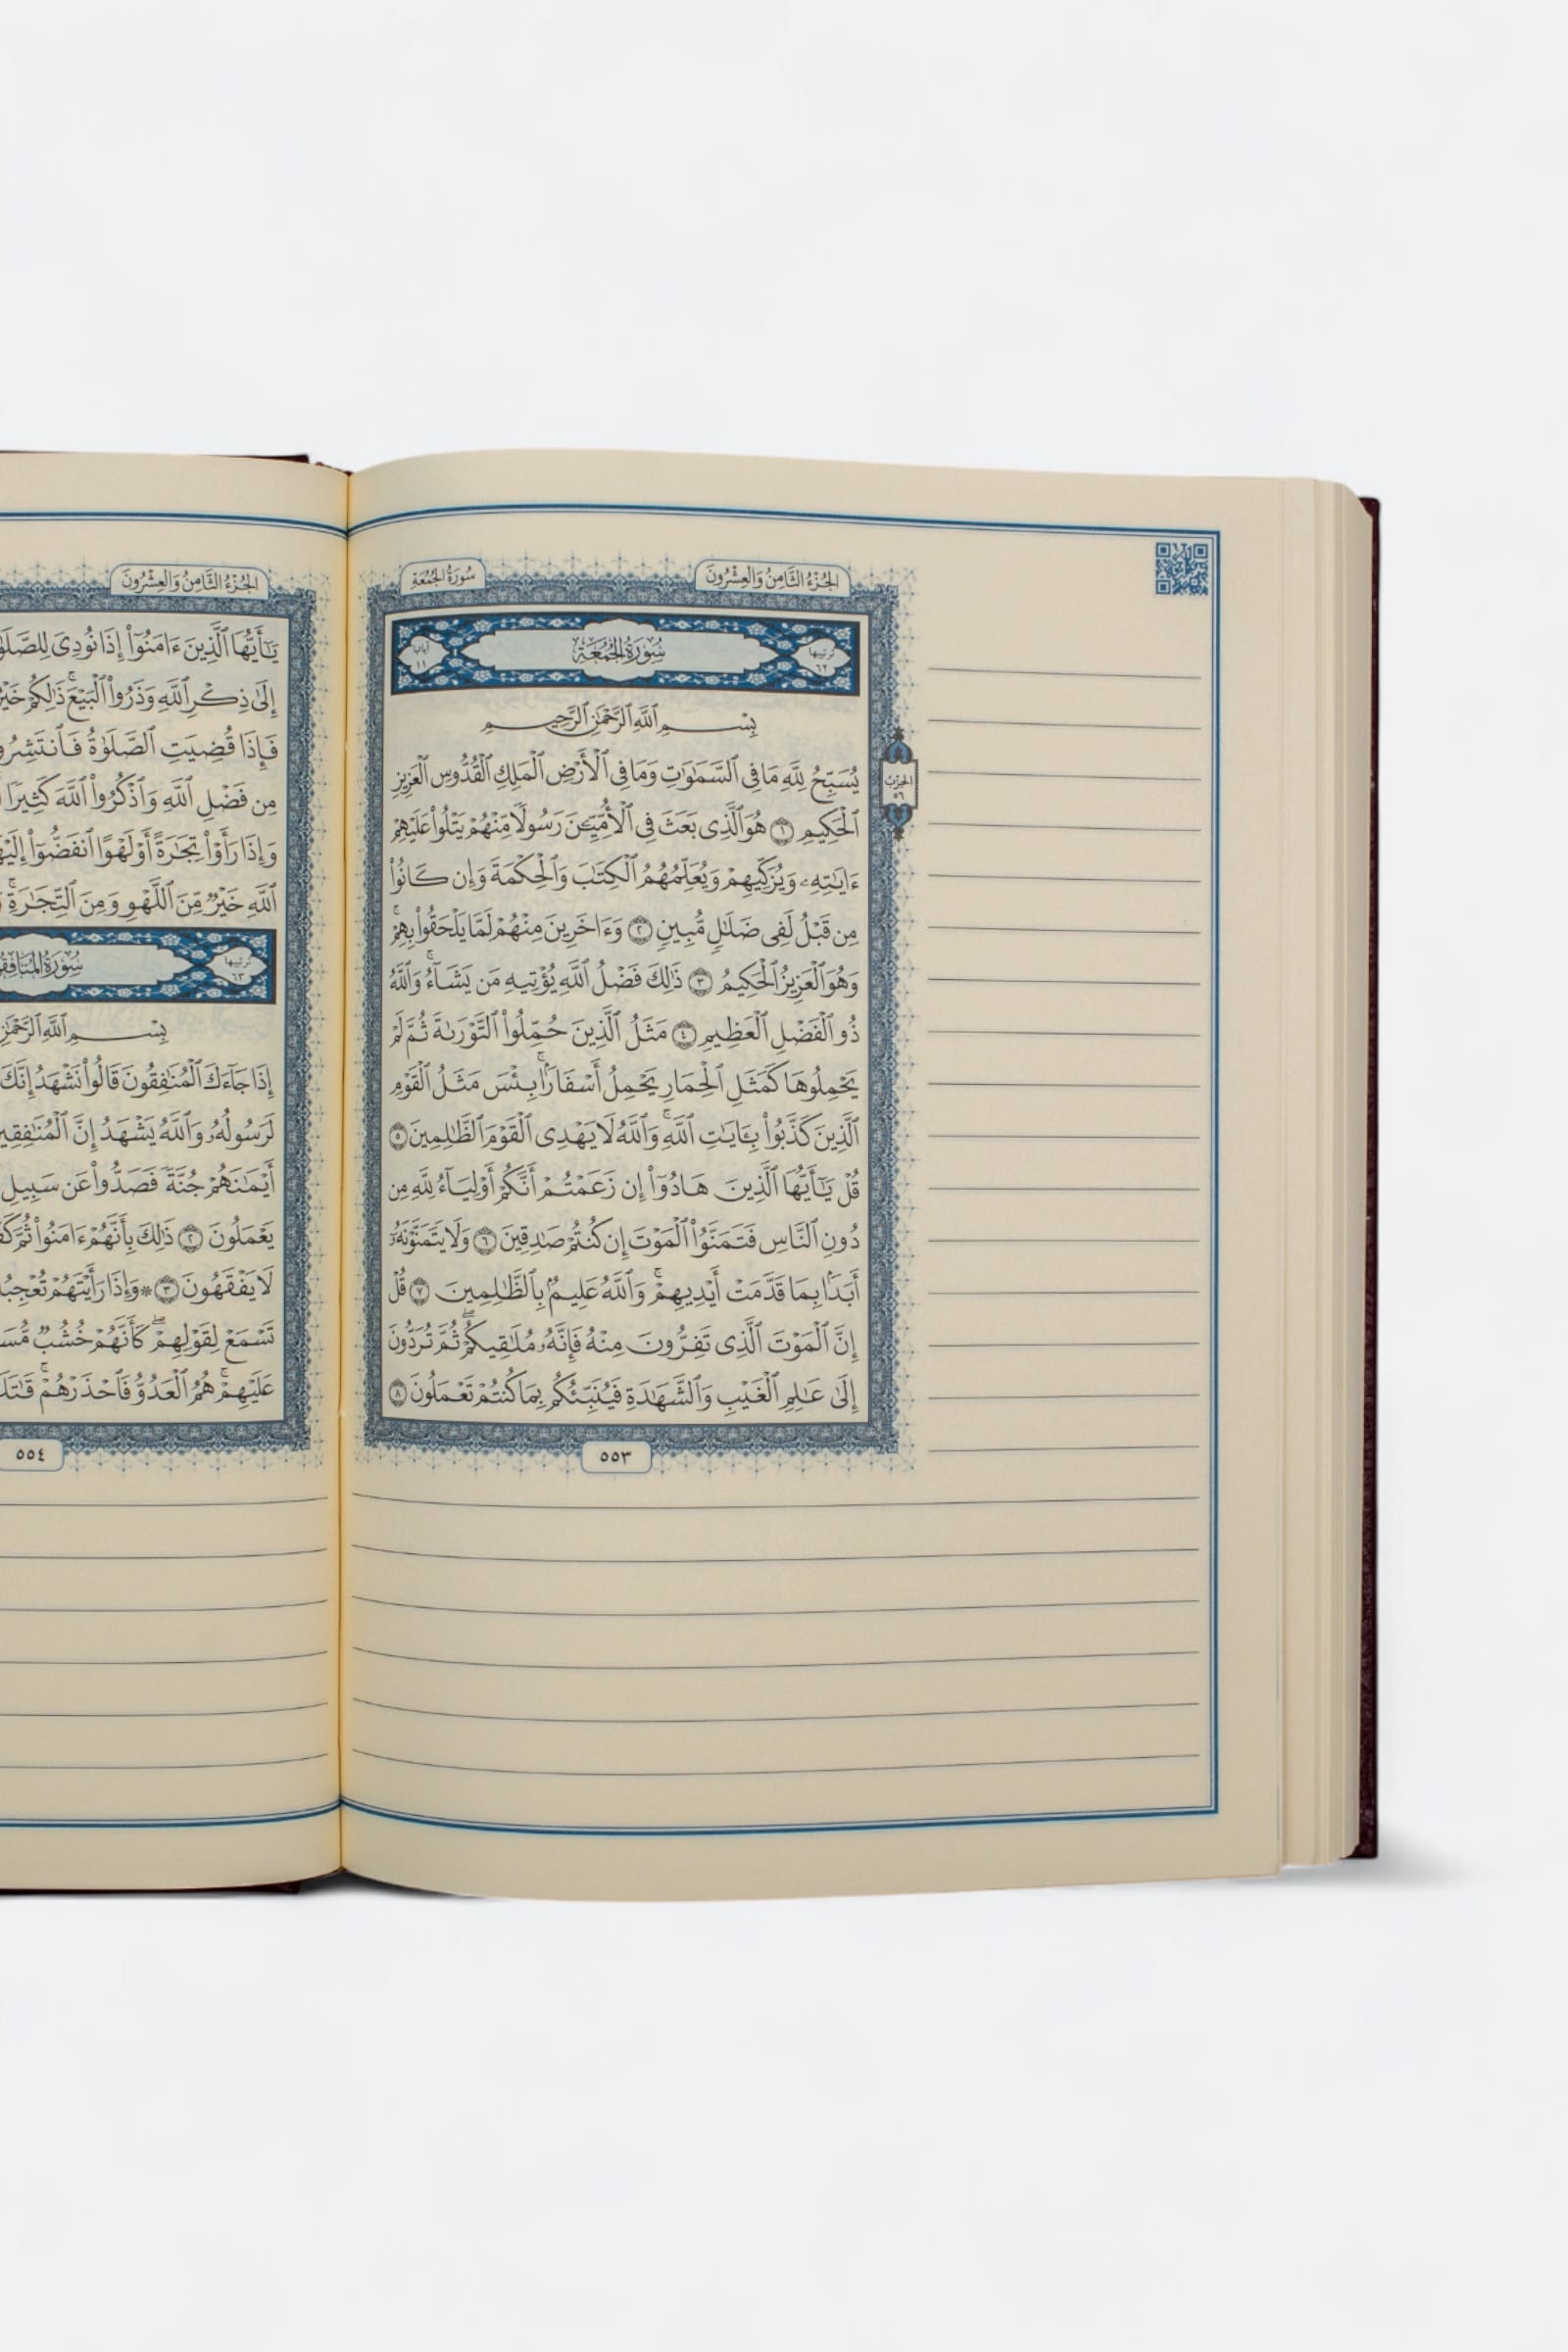 الجُزْءُ الثَّامِنُ وَالعِشْرُونَ
سُورَةُ الجُمُعَةِ
تَرْتِيبُهَا ٦٢
سُورَةُ الجُمُعَةِ
آيَاتُهَا ١١
بِسْمِ ٱللَّهِ ٱلرَّحْمَٰنِ ٱلرَّحِيمِ
يُسَبِّحُ لِلَّهِ مَا فِي ٱلسَّمَٰوَٰتِ وَمَا فِي ٱلْأَرْضِ ٱلْمَلِكِ ٱلْقُدُّوسِ ٱلْعَزِيزِ
ٱلْحَكِيمِ ١ هُوَ ٱلَّذِي بَعَثَ فِي ٱلْأُمِّيِّـۧنَ رَسُولًا مِّنْهُمْ يَتْلُوا۟ عَلَيْهِمْ
ءَايَٰتِهِۦ وَيُزَكِّيهِمْ وَيُعَلِّمُهُمُ ٱلْكِتَٰبَ وَٱلْحِكْمَةَ وَإِن كَانُوا۟
مِن قَبْلُ لَفِي ضَلَٰلٍ مُّبِينٍ ٢ وَءَاخَرِينَ مِنْهُمْ لَمَّا يَلْحَقُوا۟ بِهِمْۚ
وَهُوَ ٱلْعَزِيزُ ٱلْحَكِيمُ ٣ ذَٰلِكَ فَضْلُ ٱللَّهِ يُؤْتِيهِ مَن يَشَآءُۚ وَٱللَّهُ
ذُو ٱلْفَضْلِ ٱلْعَظِيمِ ٤ مَثَلُ ٱلَّذِينَ حُمِّلُوا۟ ٱلتَّوْرَىٰةَ ثُمَّ لَمْ
يَحْمِلُوهَا كَمَثَلِ ٱلْحِمَارِ يَحْمِلُ أَسْفَارَۢاۚ بِئْسَ مَثَلُ ٱلْقَوْمِ
ٱلَّذِينَ كَذَّبُوا۟ بِـَٔايَٰتِ ٱللَّهِۚ وَٱللَّهُ لَا يَهْدِي ٱلْقَوْمَ ٱلظَّٰلِمِينَ ٥
قُلْ يَٰٓأَيُّهَا ٱلَّذِينَ هَادُوٓا۟ إِن زَعَمْتُمْ أَنَّكُمْ أَوْلِيَآءُ لِلَّهِ مِن
دُونِ ٱلنَّاسِ فَتَمَنَّوُا۟ ٱلْمَوْتَ إِن كُنتُمْ صَٰدِقِينَ ٦ وَلَا يَتَمَنَّوْنَهُۥٓ
أَبَدَۢا بِمَا قَدَّمَتْ أَيْدِيهِمْۚ وَٱللَّهُ عَلِيمُۢ بِٱلظَّٰلِمِينَ ٧ قُلْ
إِنَّ ٱلْمَوْتَ ٱلَّذِي تَفِرُّونَ مِنْهُ فَإِنَّهُۥ مُلَٰقِيكُمْۖ ثُمَّ تُرَدُّونَ
إِلَىٰ عَٰلِمِ ٱلْغَيْبِ وَٱلشَّهَٰدَةِ فَيُنَبِّئُكُم بِمَا كُنتُمْ تَعْمَلُونَ ٨
الحِزْبُ
٥٦
٥٥٣
الجُزْءُ الثَّامِنُ وَالعِشْرُونَ
يَٰٓأَيُّهَا ٱلَّذِينَ ءَامَنُوٓا۟ إِذَا نُودِيَ لِلصَّلَو
إِلَىٰ ذِكْرِ ٱللَّهِ وَذَرُوا۟ ٱلْبَيْعَۚ ذَٰلِكُمْ خَيْر
فَإِذَا قُضِيَتِ ٱلصَّلَوٰةُ فَٱنتَشِرُو
مِن فَضْلِ ٱللَّهِ وَٱذْكُرُوا۟ ٱللَّهَ كَثِيرًا
وَإِذَا رَأَوْا۟ تِجَٰرَةً أَوْ لَهْوًا ٱنفَضُّوٓا۟ إِلَيْه
ٱللَّهِ خَيْرٌ مِّنَ ٱللَّهْوِ وَمِنَ ٱلتِّجَٰرَةِۚ
تَرْتِيبُهَا ٦٣
سُورَةُ المُنَافِقُو
بِسْمِ ٱللَّهِ ٱلرَّحْمَٰنِ
إِذَا جَآءَكَ ٱلْمُنَٰفِقُونَ قَالُوا۟ نَشْهَدُ إِنَّكَ
لَرَسُولُهُۥ وَٱللَّهُ يَشْهَدُ إِنَّ ٱلْمُنَٰفِقِي
أَيْمَٰنَهُمْ جُنَّةً فَصَدُّوا۟ عَن سَبِيلِ
يَعْمَلُونَ ٢ ذَٰلِكَ بِأَنَّهُمْ ءَامَنُوا۟ ثُمَّ كَفَ
لَا يَفْقَهُونَ ٣ ۞ وَإِذَا رَأَيْتَهُمْ تُعْجِبُ
تَسْمَعْ لِقَوْلِهِمْۖ كَأَنَّهُمْ خُشُبٌ مُّسَ
عَلَيْهِمْۚ هُمُ ٱلْعَدُوُّ فَٱحْذَرْهُمْۚ قَٰتَلَ
٥٥٤